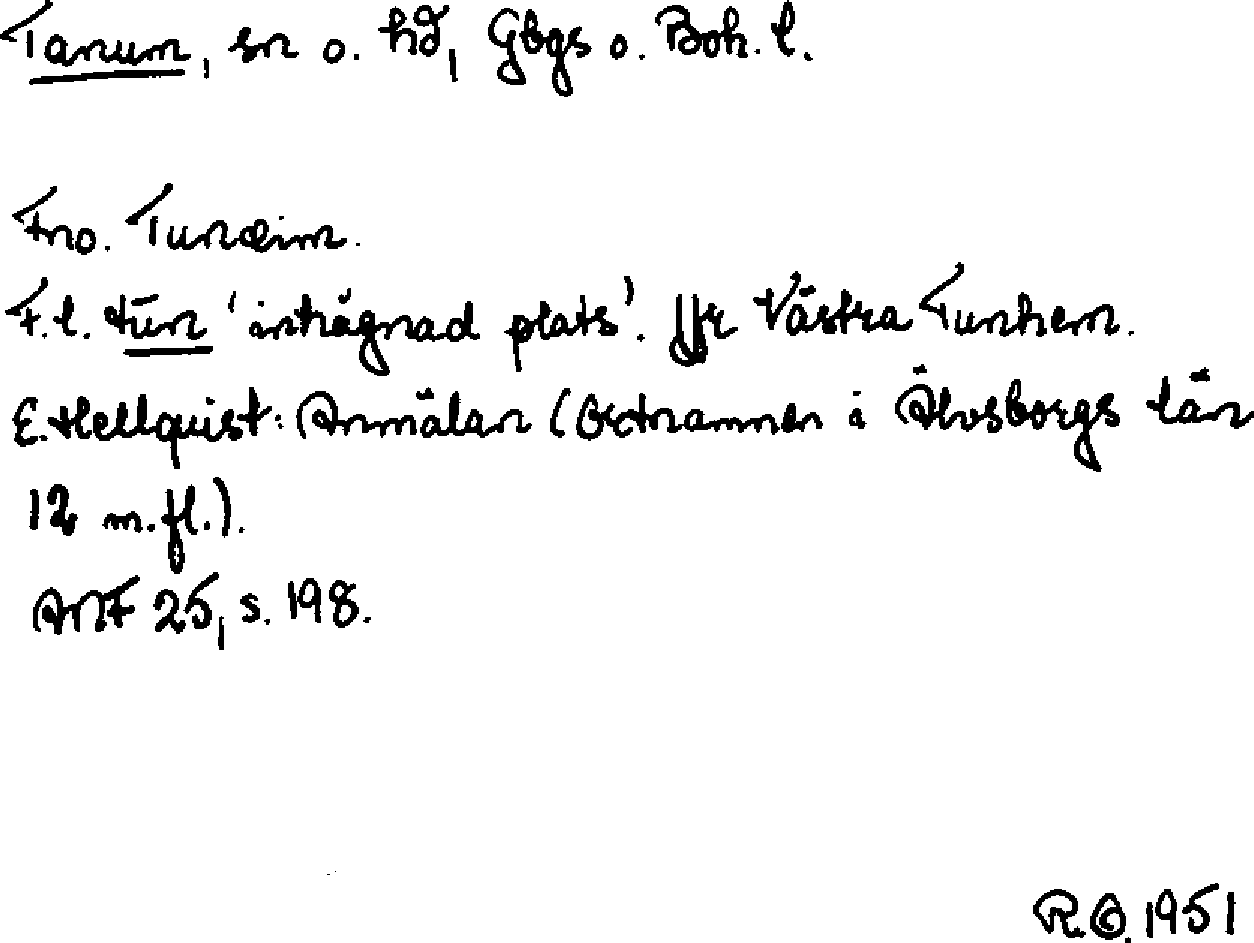 Tanum, sn o. hd, Gbgs o. Boh. l.
Fno. Tunæim.
F.l. tūn 'inhägnad plats'. Jfr Västra Tunhem.
E. Hellquist: Anmälan (Ortnamnen i Älvsborgs län
12 m.fl.).
ANF 25, s. 198.
R.O. 1951